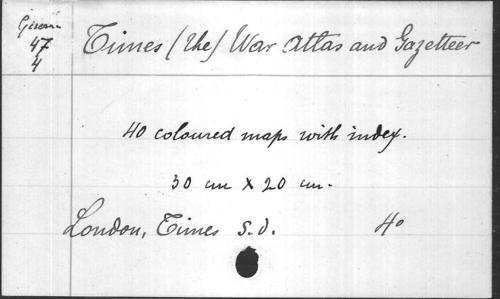 Times (the) War Atlas and Gazetteer
47
4
40 coloured maps with index.
30 cm X 20 cm.
London, Times s.d. 4o